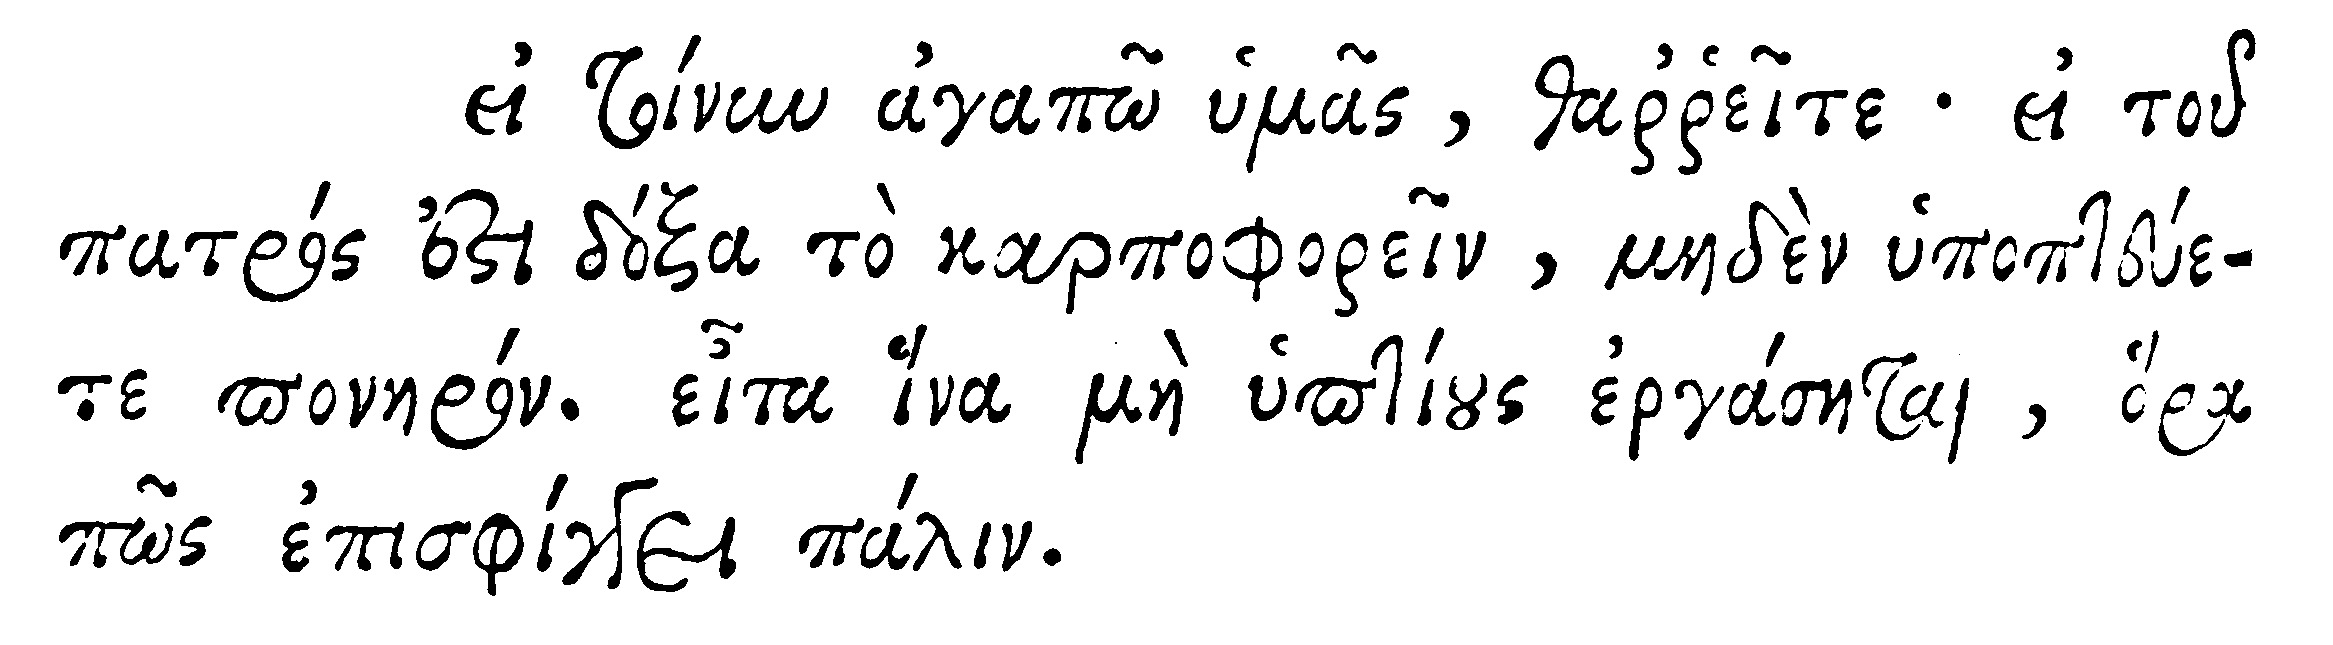 εἰ τοίνυν ἀγαπῶ ὑμᾶς, θαῤῥεῖτε · εἰ τοῦ
πατρός ἐστι δόξα τὸ καρποφορεῖν, μηδὲν ὑποπτεύε-
τε πονηρόν. εἶτα ἵνα μὴ ὑπτίους ἐργάσηται, ὅρα
πῶς ἐπισφίγγει πάλιν.